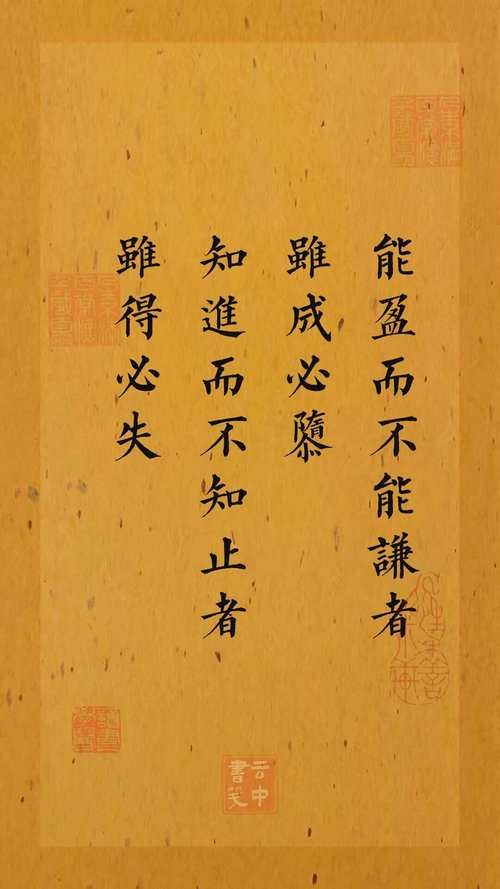 能盈而不能謙者
雖成必隳
知進而不知止者
雖得必失
云中
書笺